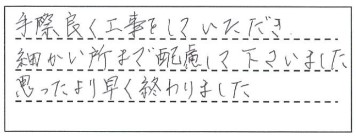 手際良く工事をしていただき
細かい所まで配慮して下さいました
思ったより早く終わりました